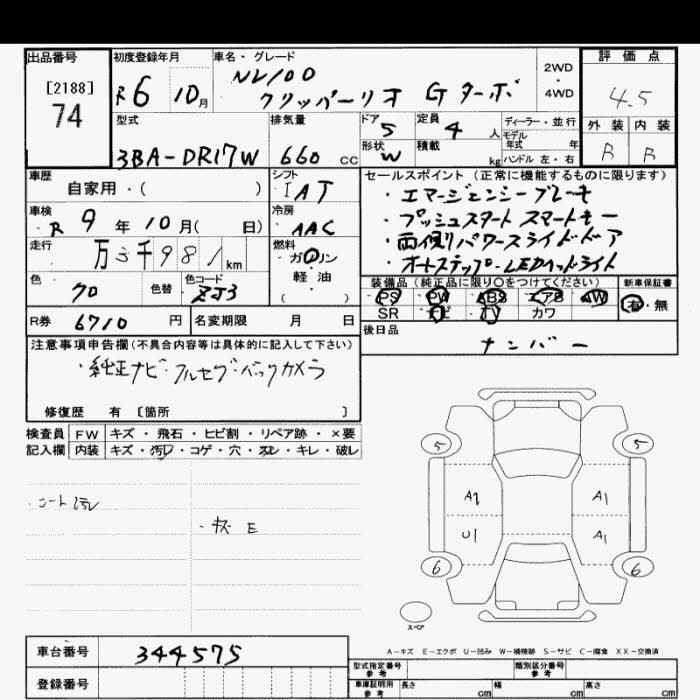 出品番号
[2188]
74
初度登録年月
R6 10月
車名・グレード
NV100
クリッパーリオ Gターボ
2WD
・
4WD
評価点
4.5
外装 内装
B B
型式
3BA-DR17W
排気量
660 cc
ドア
5
形状
W
定員
4 人
積載
kg
ディーラー・並行
モデル
年式 年
ハンドル 左・右
車歴
自家用・( )
シフト
IAT
車検
R 9 年 10 月( 日)
冷房
AAC
走行
万 3千981 km
燃料
ガソリン
軽・油
( )
色
クロ
色替
色コード
ZJ3
R券 6710 円
名変期限 月 日
セールスポイント (正常に機能するものに限ります)
・エマージェンシーブレーキ
・プッシュスタート スマートキー
・両側パワースライドドア
・オートステップ・LEDヘッドライト
装備品(純正品に限り○をつけてください)
新車保証書
PS PW ABS エアB AW
SR ナビ TV カワ
有・無
後日品
ナンバー
注意事項申告欄(不具合内容等は具体的に記入して下さい)
・純正ナビ・フルセグ・バックカメラ
修復歴 有 [箇所 ]
検査員 FW キズ・飛石・ヒビ割・リペア跡・×要
記入欄 内装 キズ・汚れ・コゲ・穴・スレ・キレ・破レ
・シート汚レ
・キズ E
5 5
A2 A1
U1 A1
6 6
スペア
A-キズ E-エクボ U-凹み W-補修跡 S-サビ C-腐食 XX-交換済
車台番号 344575
登録番号
型式指定番号
参考
類別区分番号
参考
車庫証明用
参考
長さ cm 幅 cm 高さ cm